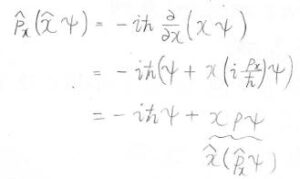 p̂ₓ(x̂ψ) = -iħ ∂/∂x (xψ)
= -iħ(ψ + x(i pₓ/ħ)ψ)
= -iħψ + xpψ
x̂(p̂ₓψ)